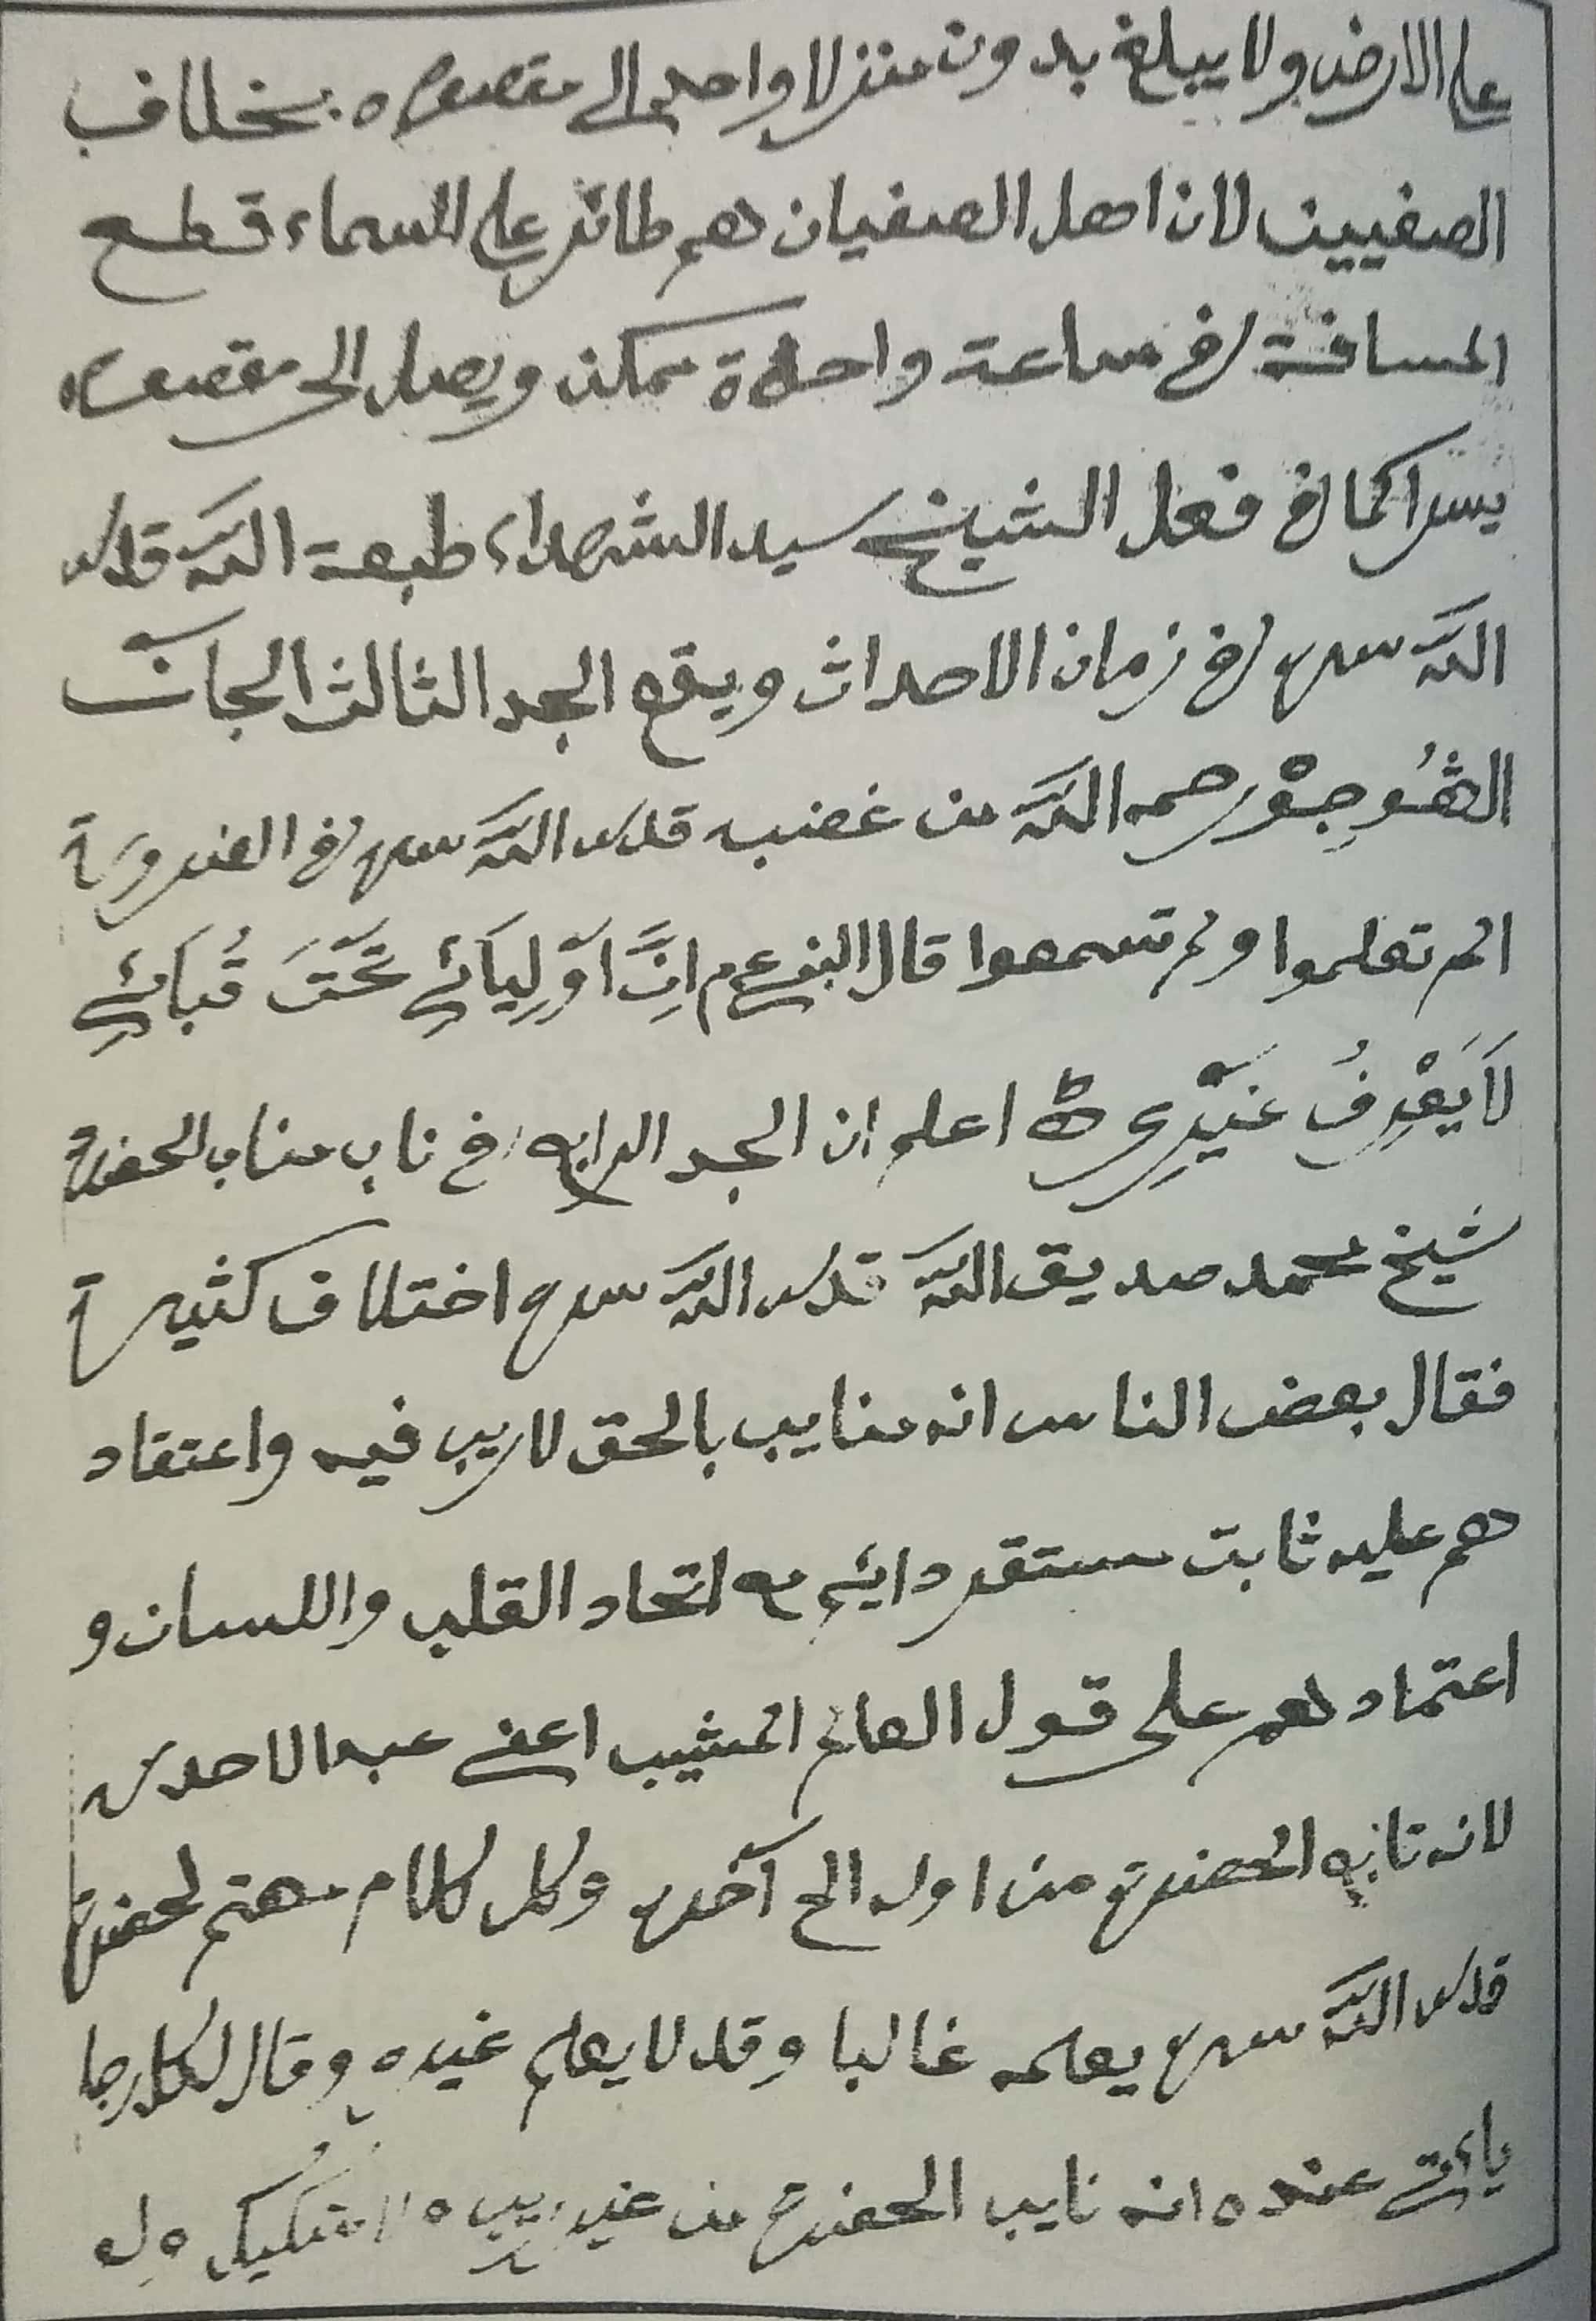 على الارض ولا يبلغ بدون منزلا واحد الى مقصوده بخلاف
الصفيين لان اهل الصفيان هم طائر على السماء قطع
المسافة في ساعة واحدة يمكن ويصل الى مقصوده
يسرا كما في فعل الشيخ سيد الشهداء طبعة اللّٰه قدس
اللّٰه سره في زمان الاحداث ويقع الجد الثالث الجان
رحمه اللّٰه من غضب قدس اللّٰه سره في الضرورة
الم تعلموا ولم تسمعوا قال النبي ع م اِنَّ اَوْلِيَائِي تَحْتَ قُبَائِي
لَا يَعْرِفُ غَيْرِي اعلم ان الجد الرابع في ناب مناب الحضرة
شيخ محمد صديق اللّٰه قدس اللّٰه سره اختلاف كثيرة
فقال بعض الناس انه منايب بالحق لا ريب فيه واعتقاد
هم عليه ثابت مستقر دائم مع اتحاد القلب واللسان و
اعتماد هم على قول العالم المشيب اعني عبد الاحد
لانه تابع الحضرة من اوله الى آخره وكل كلام مهتم لحضرة
قدس اللّٰه سره يعلمه غالبا وقد لا يعلم غيره وقال لكل رجا
ياءتي عنده انه نايب الحضرة من غير ريب